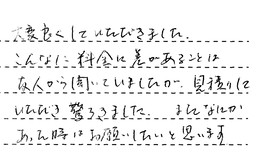 大変良くしていただきました。
こんなに料金に差があることは
友人から聞いていましたが、見積りして
いただき驚ろきました。 またなにか
あった時はお願いしたいと思います